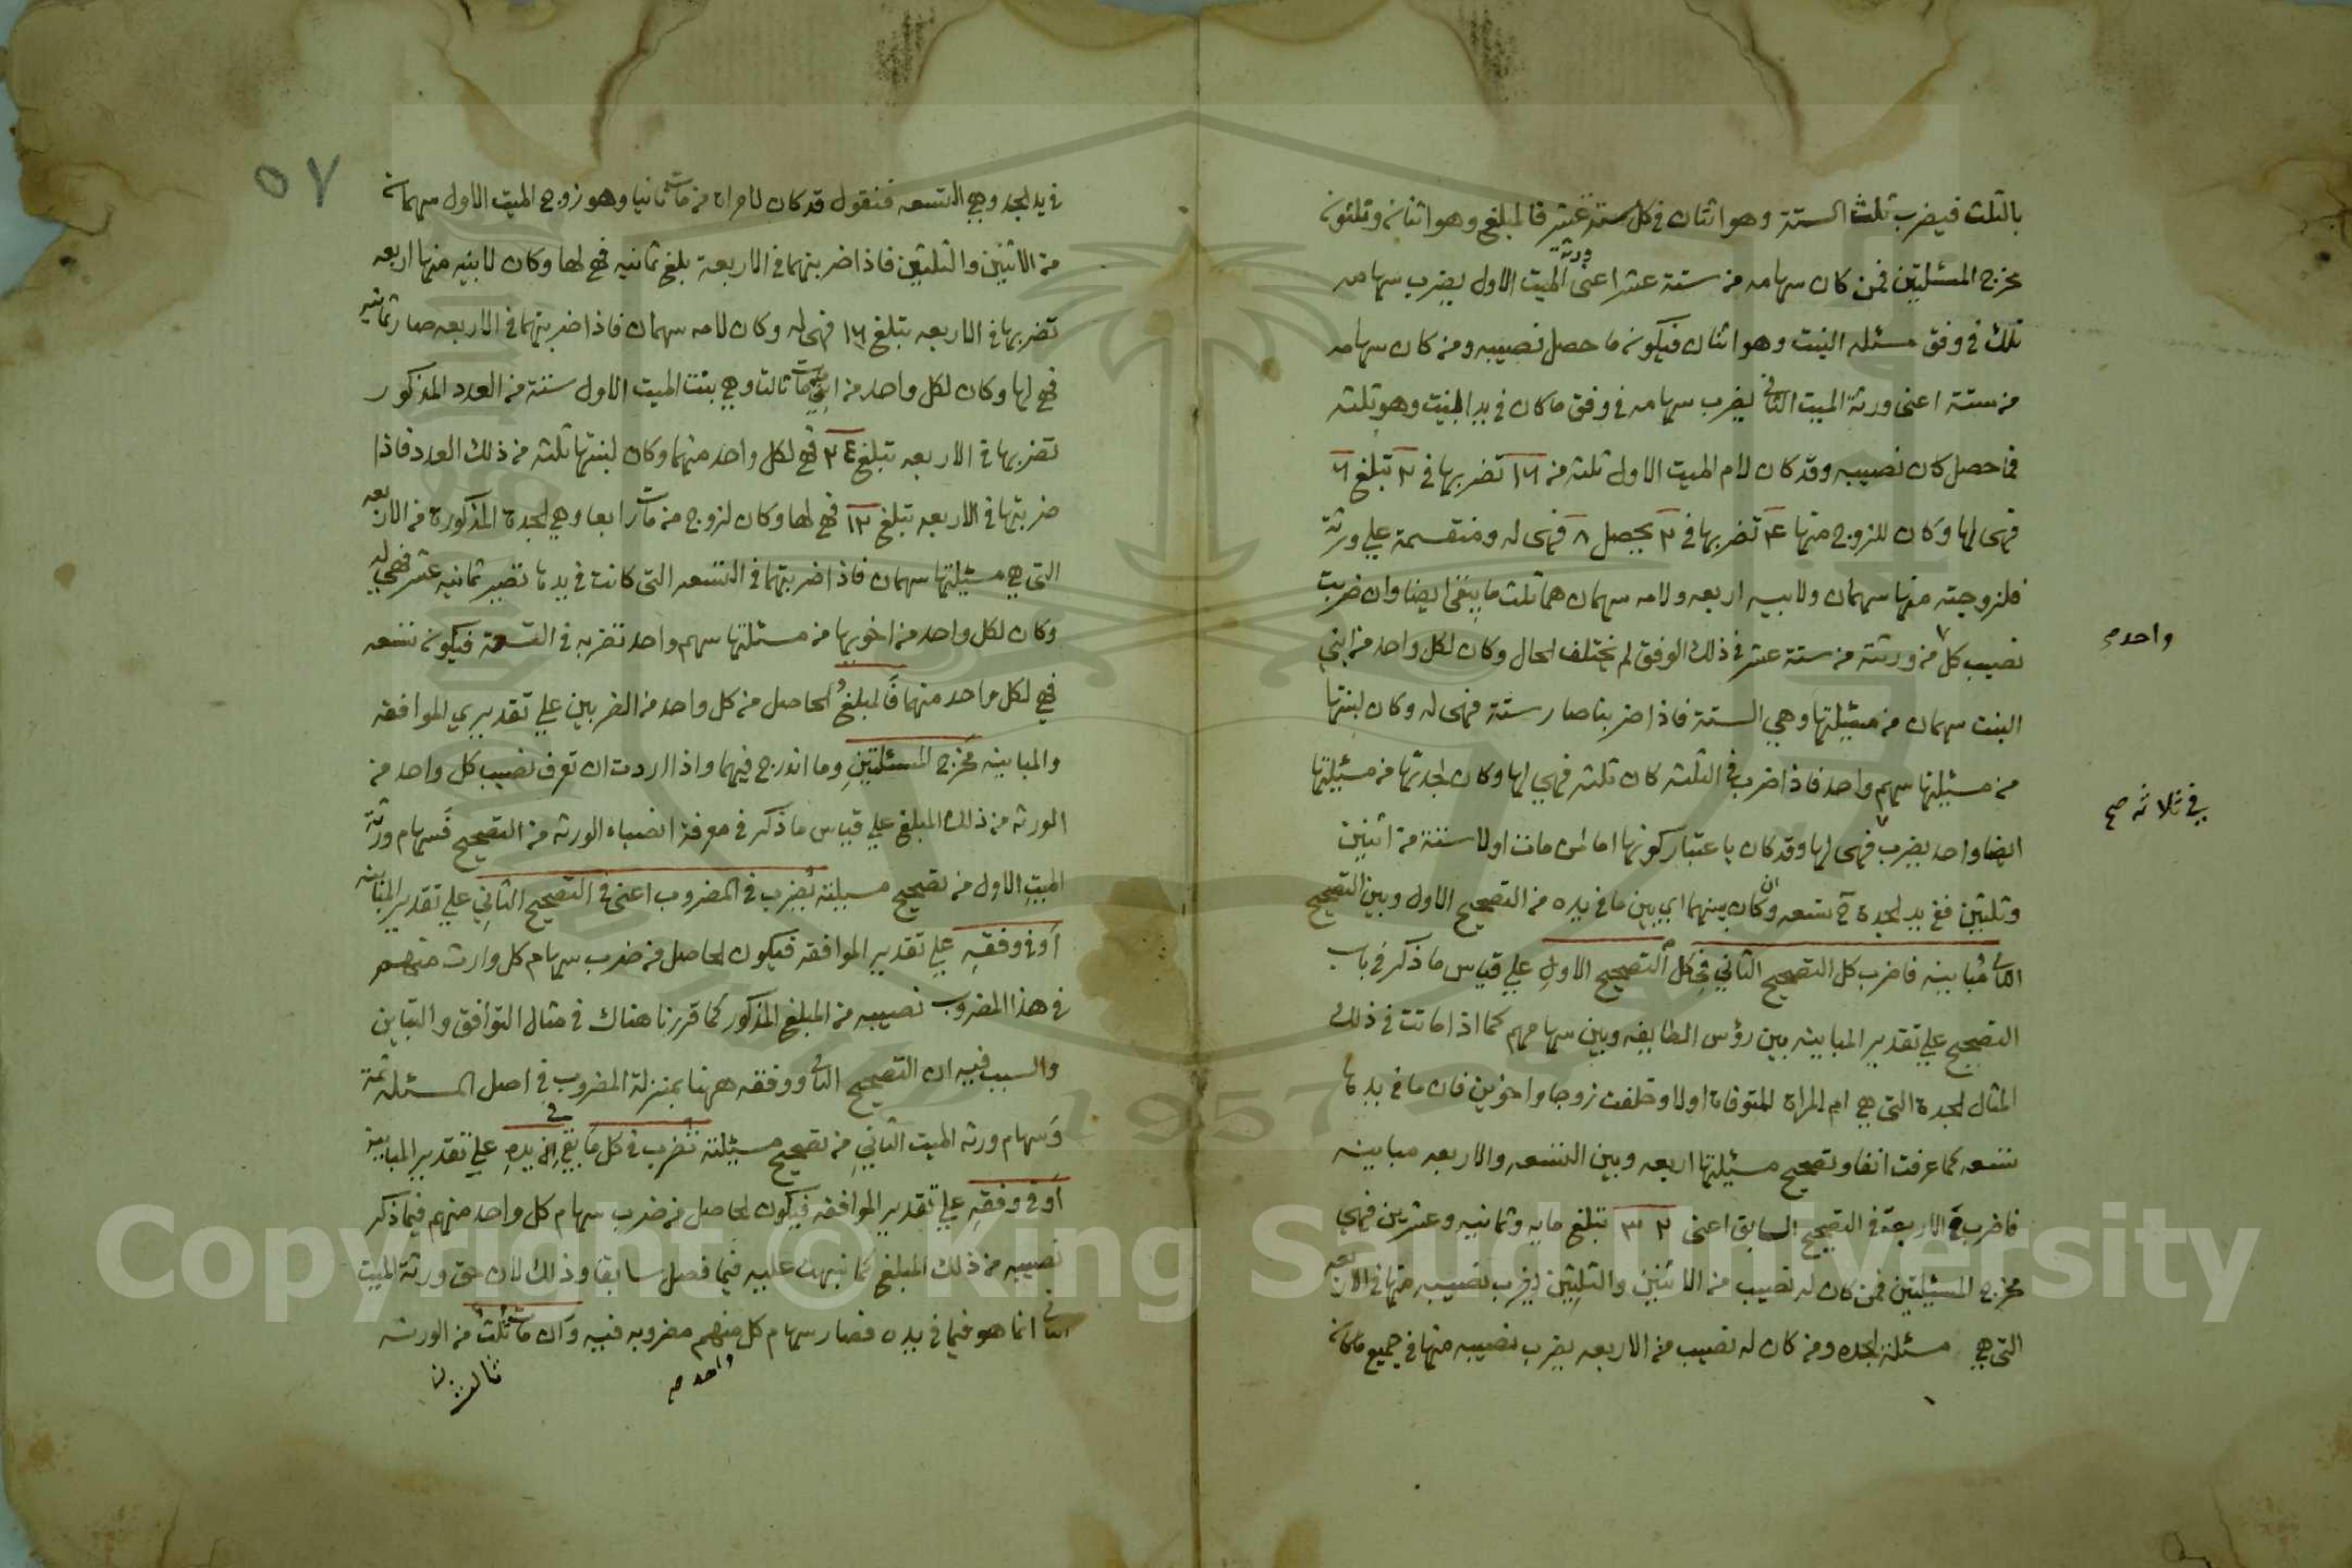 بالثلث فيضرب ثلث الستة وهو اثنان في كل ستة عشر فالمبلغ وهو اثنان وثلثون
مخرج المسئلتين فمن كان سهامه من ستة عشر اعنى ورثة الميت الاول يضرب سهامه
تلك في وفق مسئله البنت وهو اثنان فيكون ما حصل نصيبه ومن كان سهامه
من ستة اعنى ورثة الميت الثاني يضرب سهامه في وفق ما كان في يد البنت وهو ثلثه
فما حصل كان نصيبه وقد كان لام الميت الاول ثلثه من ١٦ تضربها في ٢ تبلغ ٦
فهى لها وكان للزوج منها ٤ تضربها في ٢ يحصل ٨ فهى له ومنقسمة علي ورثة
فلزوجته منها سهمان ولابيه اربعه ولامه سهمان هما ثلث ما يبقى ايضا وان ضربت
نصيب كل من ورثته من ستة عشر في ذلك الوفق لم يختلف الحال وكان لكل واحد من ابني
واحد م
البنت سهمان من مسئيلتها وهي الستة فاذا ضربنا صار ستة فهى له وكان لبنتها
من مسئيلتها سهم واحد فاذا ضرب في الثلثه كان ثلثه فهي لها وكان لجدتها من مسئيلتها
في ثلاثه صح
ايضا واحد يضرب فهى لها وقد كان باعتبار كونها اما لمن مات اولا ستة من اثنين
وثلثين ففي يد الجدة تسعه وان كان بينهما اي بين ما في يده من التصحيح الاول وبين التصحيح
الثاني مباينه فاضرب كل التصحيح الثاني في كل التصحيح الاول علي قياس ما ذكر في باب
التصحيح علي تقدير المباينه بين رؤس الطايفه وبين سهامهم كما اذا ماتت في ذلك
المثال الجدة التى هي ام المراة المتوفاة اولا وخلفت زوجا واخوين فان ما في يدها
تسعه كما عرفت انفا وتصحيح مسئيلتها اربعه وبين التسعه والاربعه مباينه
فاضرب الاربعة في التصحيح السابق اعنى ٣٢ تبلغ مايه وثمانيه وعشرين فهي
مخرج المسئيلتين فمن كان له نصيب من الاثنين والثلثين يضرب نصيبه منها في الاربعه
التى هي مسئلة الجده ومن كان له نصيب من الاربعه يضرب نصيبه منها في جميع ما كان
٥٧
في يد الجد وهي التسعه فنقول قد كان لامراة من مات ثانيا وهو زوج الميت الاول سهمان
من الاثنين والثلثين فاذا ضربتهما في الاربعة بلغ ثمانيه فهي لها وكان لابيه منها اربعه
تضربها في الاربعه تبلغ ١٦ فهى له وكان لامه سهمان فاذا ضربتهما في الاربعه صار ثمانيه
فهي لها وكان لكل واحد من ابني من مات ثالثا وهي بنت الميت الاول ستة من العدد المذكور
تضربها في الاربعه تبلغ ٢٤ فهي لكل واحد منهما وكان لبنتها ثلثه من ذلك العدد فاذا
ضربتها في الاربعه تبلغ ١٢ فهي لها وكان لزوج من مات رابعا وهي الجدة المذكورة من الاربعه
التى هي مسئيلتها سهمان فاذا ضربتهما في التسعه التى كانت في يدها تصير ثمانيه عشر فهي له
وكان لكل واحد من اخويها من مسئلتها سهم واحد تضربه في التسعة فيكون تسعه
فهي لكل واحد منهما فالمبلغ الحاصل من كل واحد من الضربين علي تقديري الموافقه
والمباينه مخرج المسئلتين وما اندرج فيهما واذا اردت ان تعرف نصيب كل واحد من
الورثه من ذلك المبلغ علي قياس ما ذكر في معرفة انصباء الورثه من التصحيح فسهام ورثة
الميت الاول من تصحيح مسيلته تضرب في المضروب اعنى في التصحيح الثاني علي تقدير المباينه
او في وفقه علي تقدير الموافقه فيكون الحاصل من ضرب سهام كل وارث منهم
في هذا المضروب نصيبه من المبلغ المذكور كما قررنا هناك في مثال التوافق والتباين
والسبب فيه ان التصحيح الثاني ووفقه ههنا بمنزلة المضروب في اصل المسئله ثمة
وسهام ورثه الميت الثاني من تصحيح مسئيلته تضرب في كل ما في يده علي تقدير المباينه
او في وفقه علي تقدير الموافقه فيكون الحاصل من ضرب سهام كل واحد منهم فيما ذكر
نصيبه من ذلك المبلغ كما نبهت عليه فيما فصل سابقا وذلك لان حق ورثة الميت
الثاني انما هو فيما في يده فصار سهام كل منهم مضروبه فيه وان مات ثلث من الورثه
واحد م
ثالث ن
Copyright © King Saud University
1957